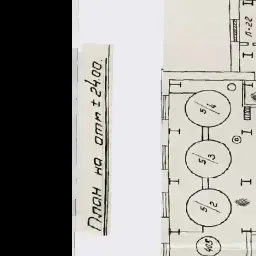 План на отм ± 24.00.
Л-22
5/4
5/3
5/2